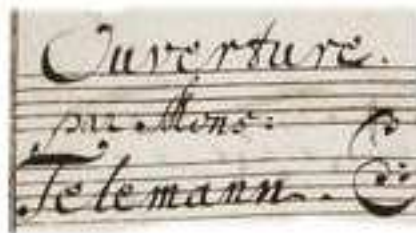 Ouverture.
par Mons:
Telemann.